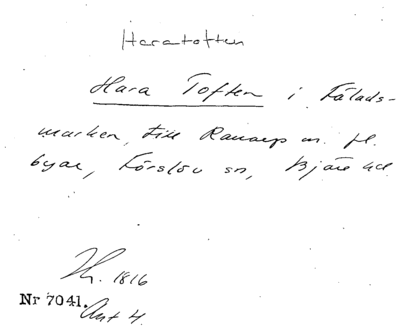 Haratoften
Hara Toften i Fälads-
marken, till Ranarp m. fl.
byar, Förslöv sn, Bjäre hd.
1816
Nr 7041.
Akt 4.